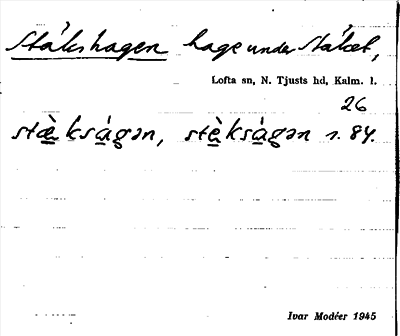 Stäkshagen hage under Stäket,
Lofta sn, N. Tjusts hd, Kalm. l.
26
stæ̀ksàgən, stèksàgən s. 84.
Ivar Modéer 1945